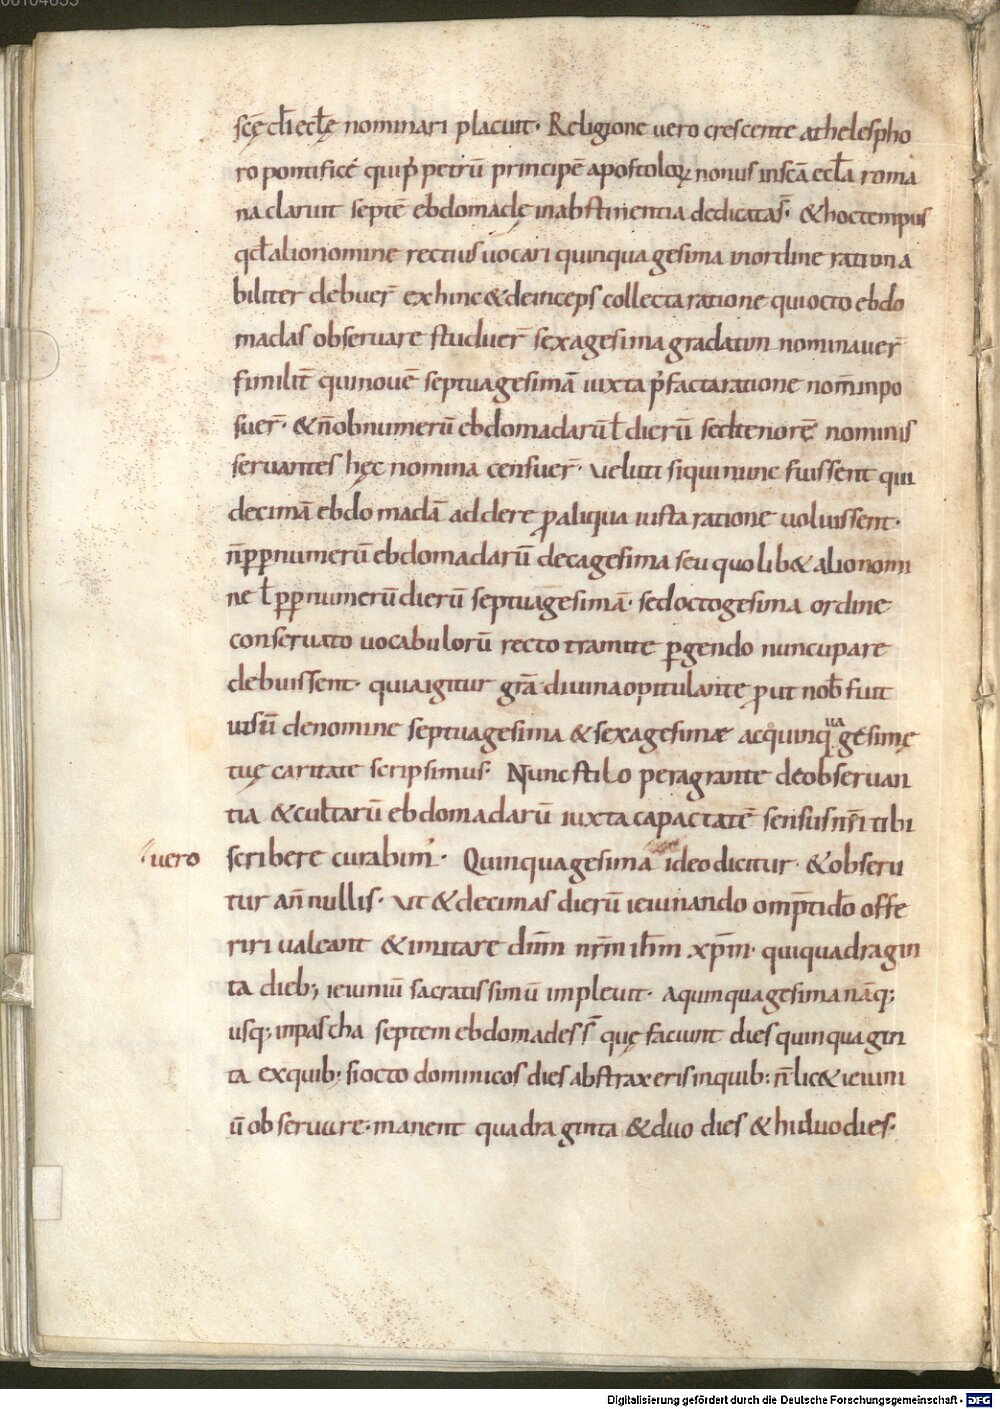 scę dī eclę nominari placuit· Religione vero crescente athelespho
ro pontifice qui p̄ petrū principē apostoloꝝ nonus inscā ecl̄a roma
na claruit septē ebdomadę inabstinentia dedicatas̄· & hoc tempus
qđ alio nomine rectius uocari quinquagesima inordine rationa
biliter debuer̄ exhinc & deinceps collecta ratione qui octo ebdo
madas obseruare studuer̄ sexagesima gradatim nominauer̄
similit̄ qui nouē septuagesimā iuxta p̄factaratione nom̄ inpo
suer̄· & n̄ ob numerū ebdomadarū ł dierū sed tenorē nominis
seruantes hęc nomina censuer̄· veluti siqui nunc fuissent qui
decimā ebdomadā addere ꝓ aliqua iusta ratione uoluissent·
n̄ ꝓp numerū ebdomadarū decagesima seu quolib& alio nomi
ne ł ꝓp numerū dierū septuagesimā· sed octogesima ordine
conseruato uocabulorū recto tramite ꝑgendo nuncupare
debuissent· quia igitur gr̄a diuina opitulante ꝓut nob̄ fuit
uisū denomine septuagesima & sexagesimæ ac quinquagesimę
tuę caritate scripsimus· Nunc stilo peragrante deobseruan
tia & cultarū ebdomadarū iuxta capactatē sensus nr̄i tibi
vero
scribere curabim̄· Quinquagesima ideo dicitur· & obseru
tur an̄ nullis· Vt & decimas dierū ieiunando omp̄ti dō offe
riri ualeant & imitare dn̄m nr̄m ihm̄ xp̄m· qui quadragin
ta dieb; ieiuniū sacratissimū impleuit· a quinquagesima nāq;
usq; in pascha septem ebdomades s̄ quę faciunt dies quinquagin
ta exquib; si octo dominicos dies abstraxeris inquib; n̄ lic& ieiuni
ū obseruare· manent quadraginta & duo dies & hi duo dies·
Digitalisierung gefördert durch die Deutsche Forschungsgemeinschaft - DFG